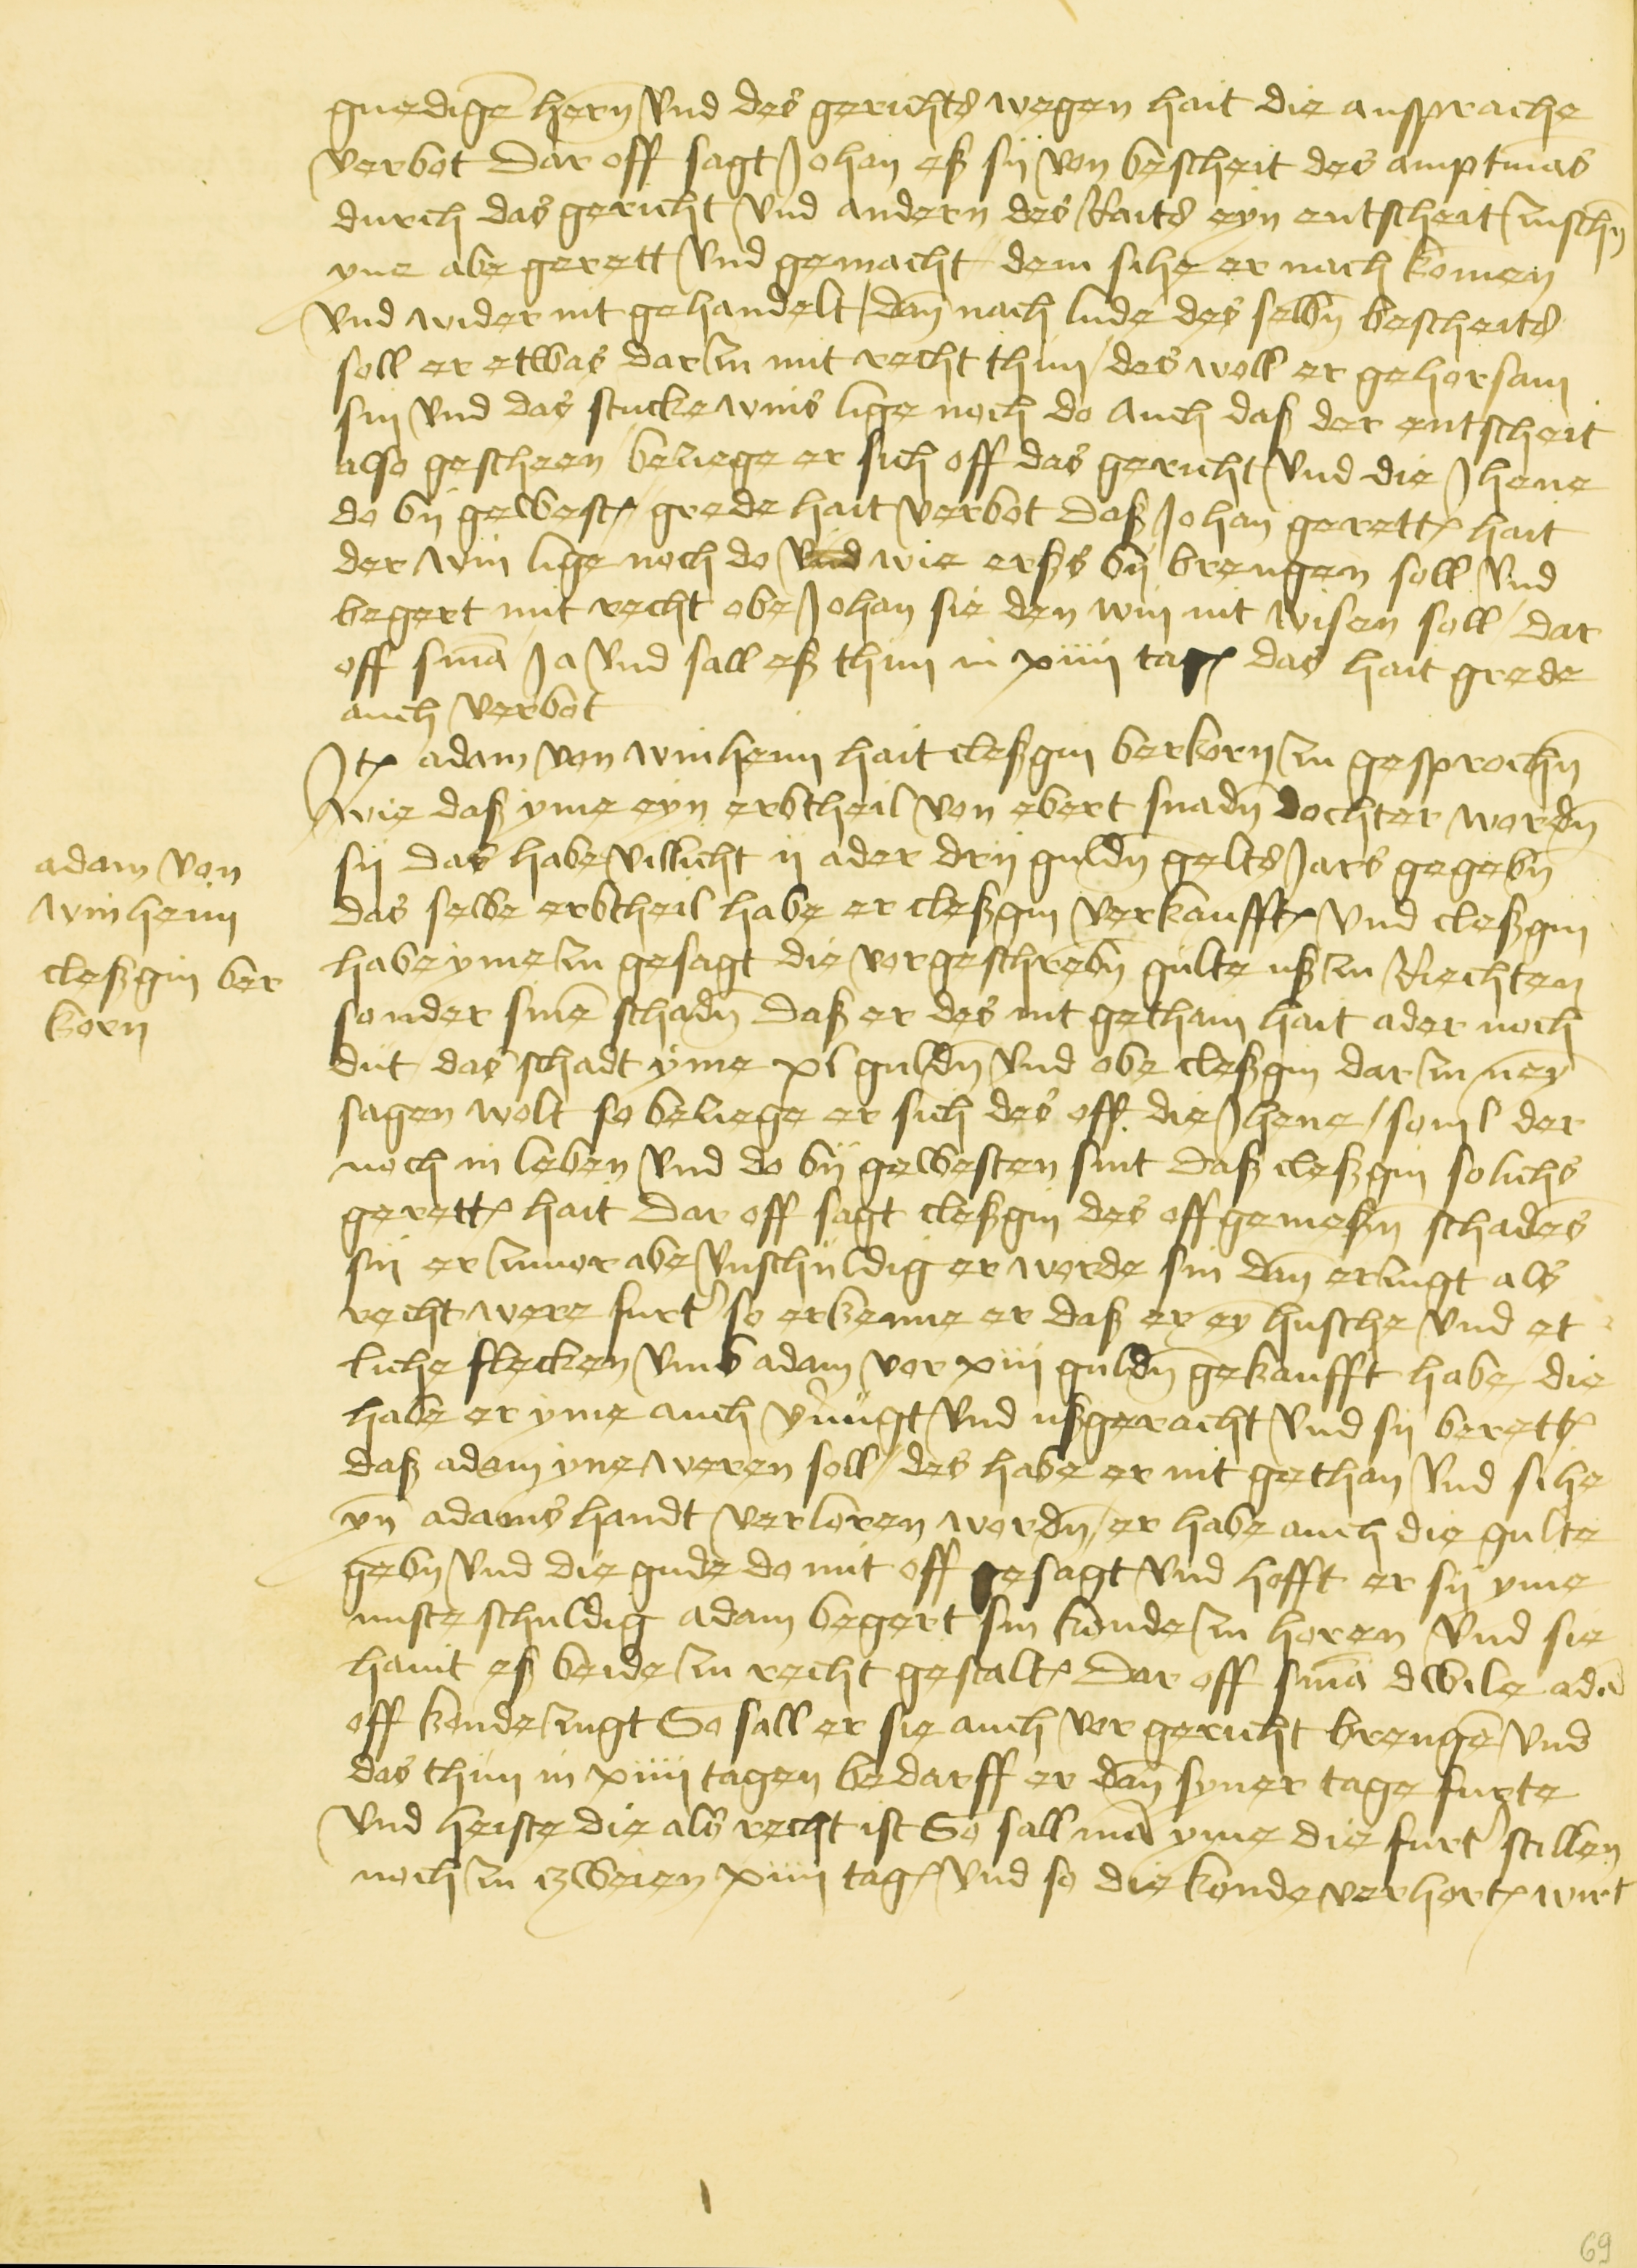 gnedigē hern vnd des gerichts wegen hait die ansprache
verbot Dar off sagt Johan eß sij von bescheit des amptmās
durch das gericht vnd andern des Raits eyn entscheit zuschn̄
yne abe gerett vnd gemacht dem sihe er nach komen
vnd wider nit gehandelt / dan̄ nach lude des selbn̄ bescheits
soll er etwas dar zu mit recht thun / des woll er gehorsam
sin vnd das stucke wins lige noch do Auch daß der entscheit
also gescheen beziege er sich off das gericht vnd die Jhene
do bij gewest / grede hait verbot Daß Johan gerett hait
der win lige noch do wie erßs bij brengen soll vnd
begert mit recht obe Johan sie den win nit wisen soll / dar
off smā Ja vnd sall eß thun in xiiii tag das hait grede
auch verbot
Jt adam von winheim hait cleßgin berkorn zu gesprochn̄
wie daß yme eyn erbtheil von ebert snadn̄ dochter wordn̄
sij Das habe villicht ij ader drij guldn̄ gelts Jars gegebn̄
adam von
winheim
cleßgin ber
korn
das selbe erbtheil habe er cleßgin verkaufft vnd cleßgin
habe yme zu gesagt die vorgeschrebn̄ gulte uß zu Riechten
sonder sinē schadn̄ Daß er des nit gethain hait ader noch
dut das schadt yme xl guldn̄ vnd obe cleßgin dar zu neȳ
sagen wolt so beziege er sich des off die Jhene / souil der
noch in leben vnd do bij gewesten sint Daß cleßgin solichs
gerett hait Dar off sagt cleßgin des offgemeßn̄ schadēs
sij er zuuor abe vnschuldig er worde sin dan̄ erzugt als
recht were furt' so erkenne er daß er ey husche vnd et
liche flecken vmb adam vor xiii guldn̄ gekaufft habe / die
habe er yme auch v'nugt vnd ußgeracht vnd sij berett
daß adam yne weren soll / des habe er nit gethan vnd sihe
yn̄ adams handt verloren wordn̄ / er habe auch die gulte
gebn̄ vnd die gude do mit off gesagt vnd hofft er sij yme
nuste schuldig adam begert sin konde zu horen vnd sie
haint eß beide zu recht gestalt Dar off smā dwile adā
off konde zugt So sall er sie auch vor gericht brengē vnd
das thun in xiiii tagen bedarff er dan̄ syner tage furte
vnd heiste die als recht ist So sall mā yme die furt' stillen
noch zu zweien xiiii tag vnd so die konde verhort wirt
69